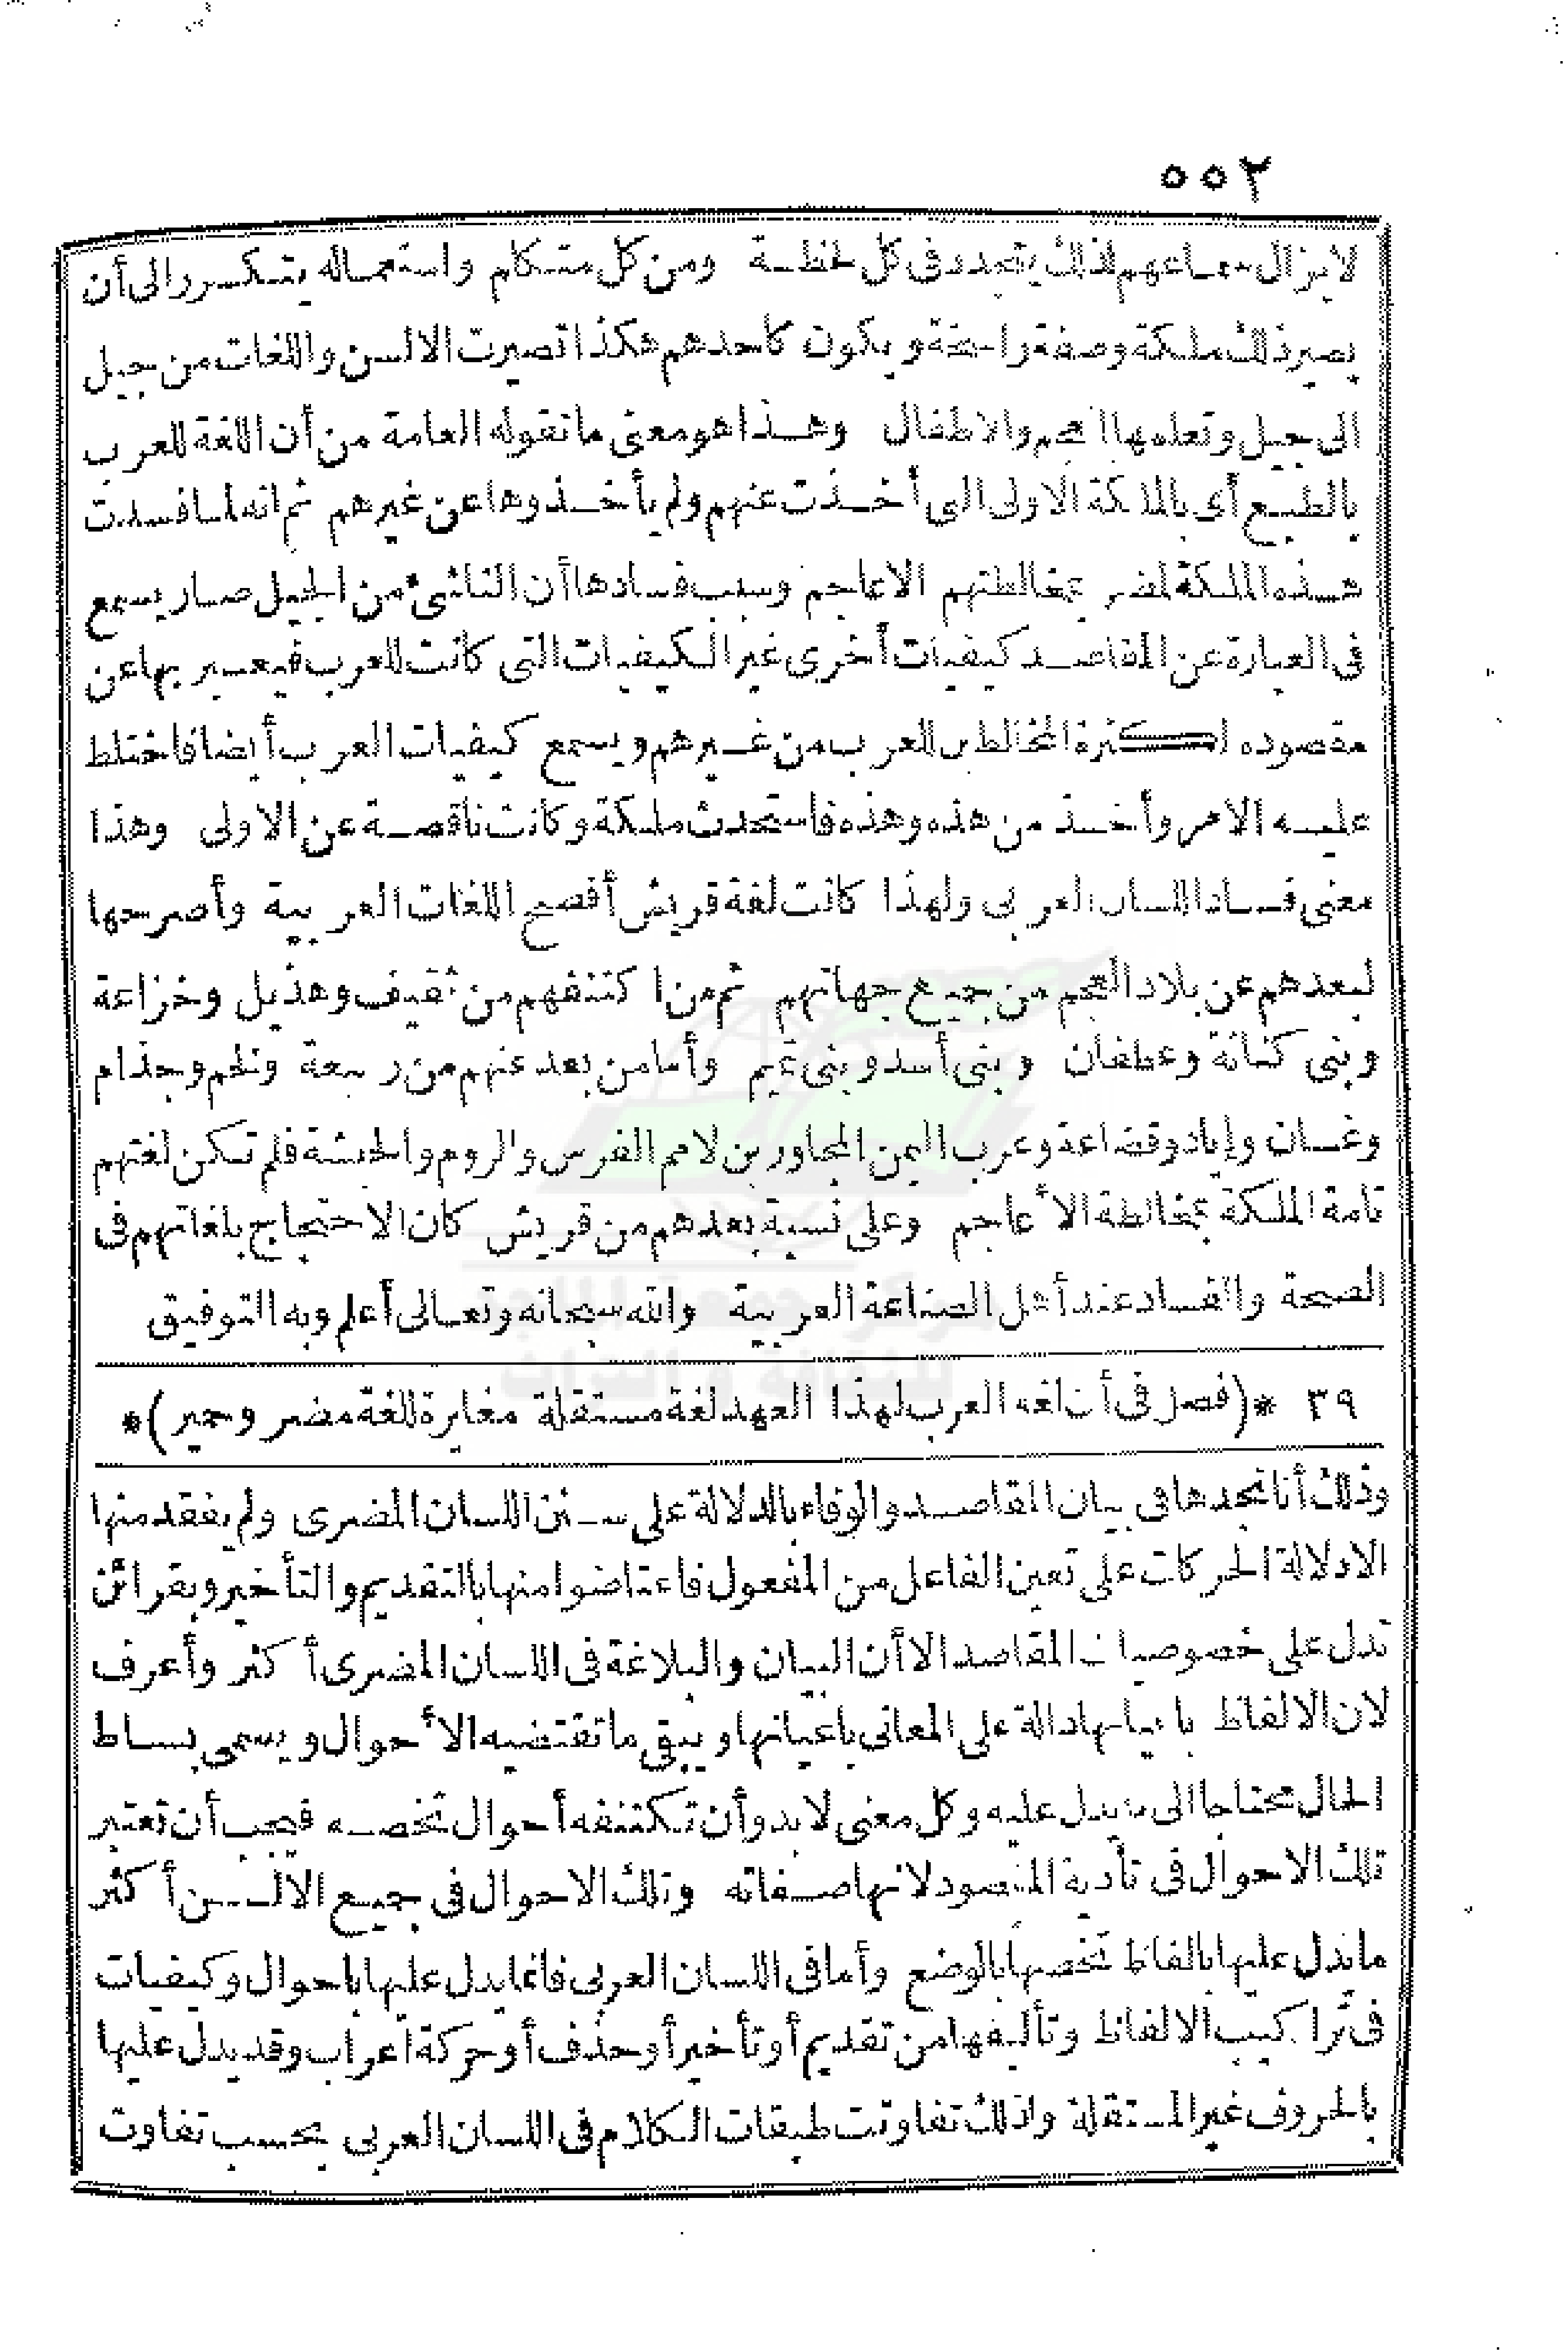 ٥٥٢
لا يزال سماعهم لذلك يتجدد في كل لحظة ومن كل متكلم واستعماله يتكرر الى أن
يصير ذلك ملكة وصفة راسخة ويكون كأحدهم هكذا تصيرت الالسن واللغات من جيل
الى جيل وتعلمها العجم والاطفال وهذا هو معنى ما تقوله العامة من أن اللغة للعرب
بالطبع أى بالملكة الاولى التى أخذت عنهم ولم يأخذوها عن غيرهم ثم انه لما فسدت
هذه الملكة لمضر بمخالطتهم الاعاجم وسبب فسادها أن الناشئ من الجيل صار يسمع
فى العبارة عن المقاصد كيفيات أخرى غير الكيفيات التى كانت للعرب فيعبر بها عن
مقصوده لكثرة المخالطين للعرب من غيرهم ويسمع كيفيات العرب أيضا فاختلط
عليه الامر وأخذ من هذه وهذه فاستحدث ملكة وكانت ناقصة عن الاولى وهذا
معنى فساد اللسان العربى ولهذا كانت لغة قريش أفصح اللغات العربية وأصرحها
لبعدهم عن بلاد العجم من جميع جهاتهم ثم من اكتنفهم من ثقيف وهذيل وخزاعة
وبنى كنانة وغطفان وبنى أسد وبنى تميم وأما من بعد عنهم من ربيعة ولخم وجذام
وغسان وإياد وقضاعة وعرب اليمن المجاورين لامم الفرس والروم والحبشة فلم تكن لغتهم
تامة الملكة بمخالطة الأعاجم وعلى نسبة بعدهم من قريش كان الاحتجاج بلغاتهم فى
الصحة والفساد عند أهل الصناعة العربية والله سبحانه وتعالى أعلم وبه التوفيق
٣٩ *(فصل فى أن لغة العرب لهذا العهد لغة مستقلة مغايرة للغة مضر وحمير)*
وذلك أنا نجدها فى بيان المقاصد والوفاء بالدلالة على سنن اللسان المضرى ولم يفقد منها
الا دلالة الحركات على تعين الفاعل من المفعول فاعتاضوا منها بالتقديم والتأخير وبقرائن
تدل على خصوصيات المقاصد الا أن البيان والبلاغة فى اللسان المضرى أكثر وأعرف
لان الالفاظ باعيانها دالة على المعانى باعيانها ويبقى ما تقتضيه الأحوال ويسمى بساط
الحال محتاجا الى ما يدل عليه وكل معنى لا بد وأن تكتنفه أحوال تخصه فيجب أن تعتبر
تلك الاحوال فى تأدية المقصود لانها صفاته وتلك الاحوال فى جميع الالسن أكثر
ما يدل عليها بالفاظ تخصها بالوضع وأما فى اللسان العربى فانما يدل عليها باحوال وكيفيات
فى تراكيب الالفاظ وتأليفها من تقديم أو تأخير أو حذف أو حركة اعراب وقد يدل عليها
بالحروف غير المستقلة ولذلك تفاوتت طبقات الكلام فى اللسان العربى بحسب تفاوت
مركز جمعة الماجد
للثقافة و التراث